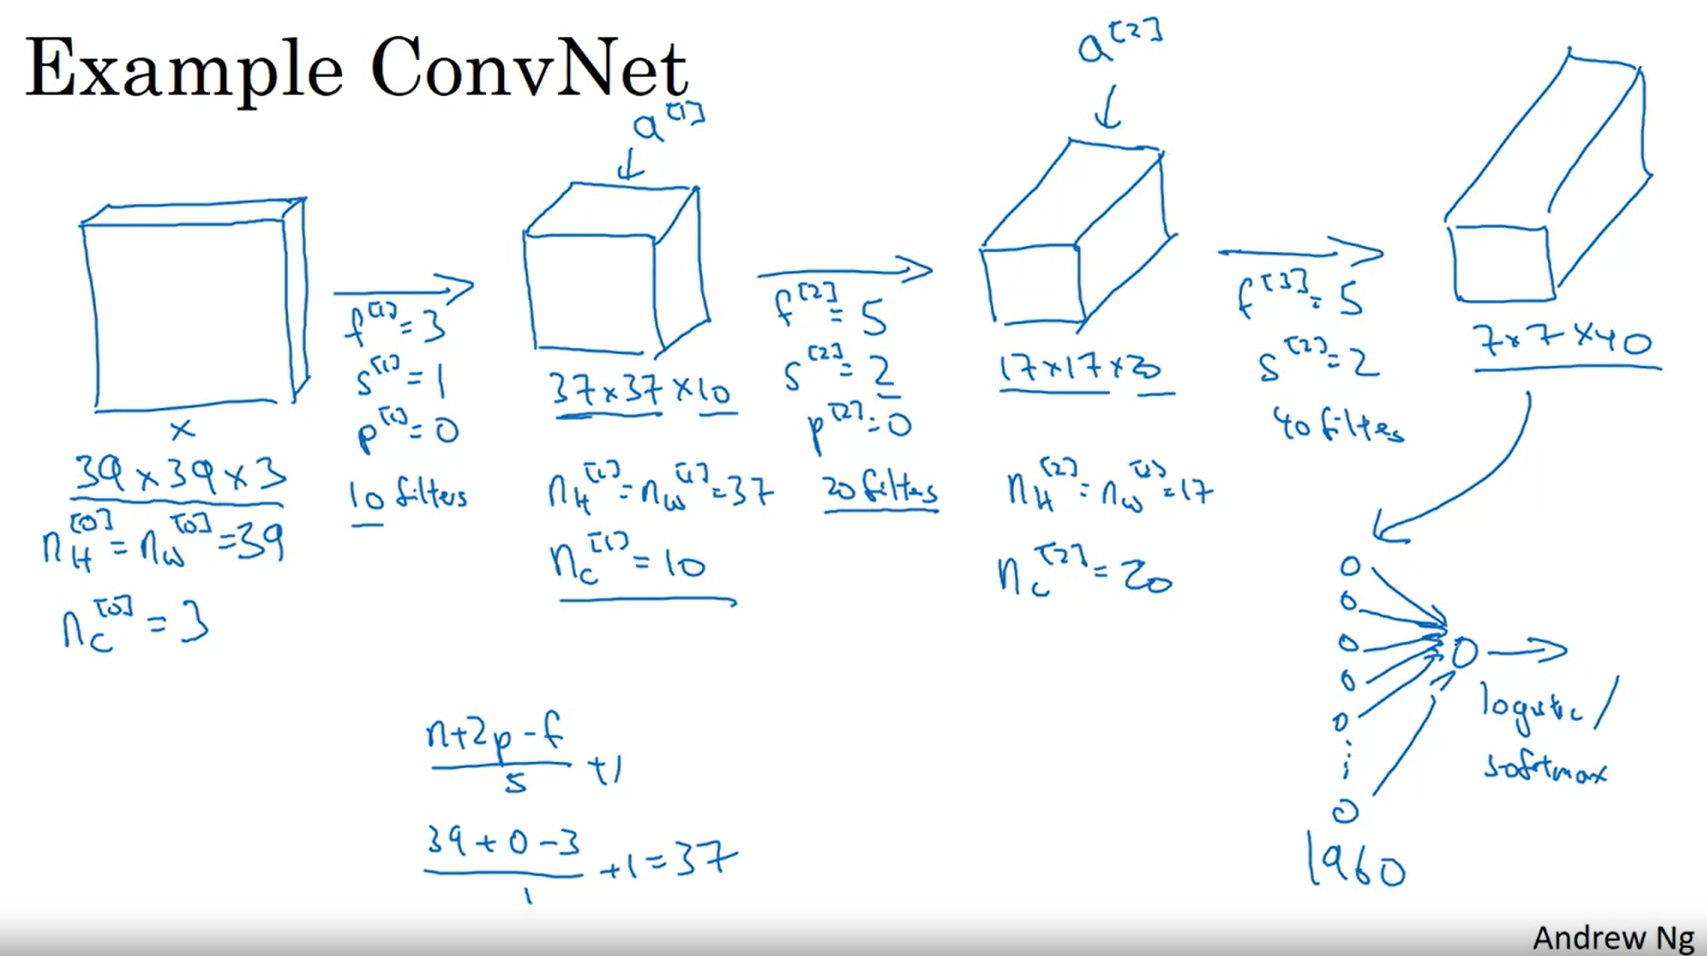 Example ConvNet
a^[1]
a^[2]
x
39 x 39 x 3
n_H^[0] = n_W^[0] = 39
n_C^[0] = 3
f^[1] = 3
s^[1] = 1
p^[1] = 0
10 filters
37 x 37 x 10
n_H^[1] = n_W^[1] = 37
n_C^[1] = 10
f^[2] = 5
s^[2] = 2
p^[2] = 0
20 filters
17 x 17 x 20
n_H^[2] = n_W^[2] = 17
n_C^[2] = 20
f^[3] = 5
s^[2] = 2
40 filters
7 x 7 x 40
1960
logistic /
softmax
n+2p-f / s +1
39+0-3 / 1 +1 = 37
Andrew Ng